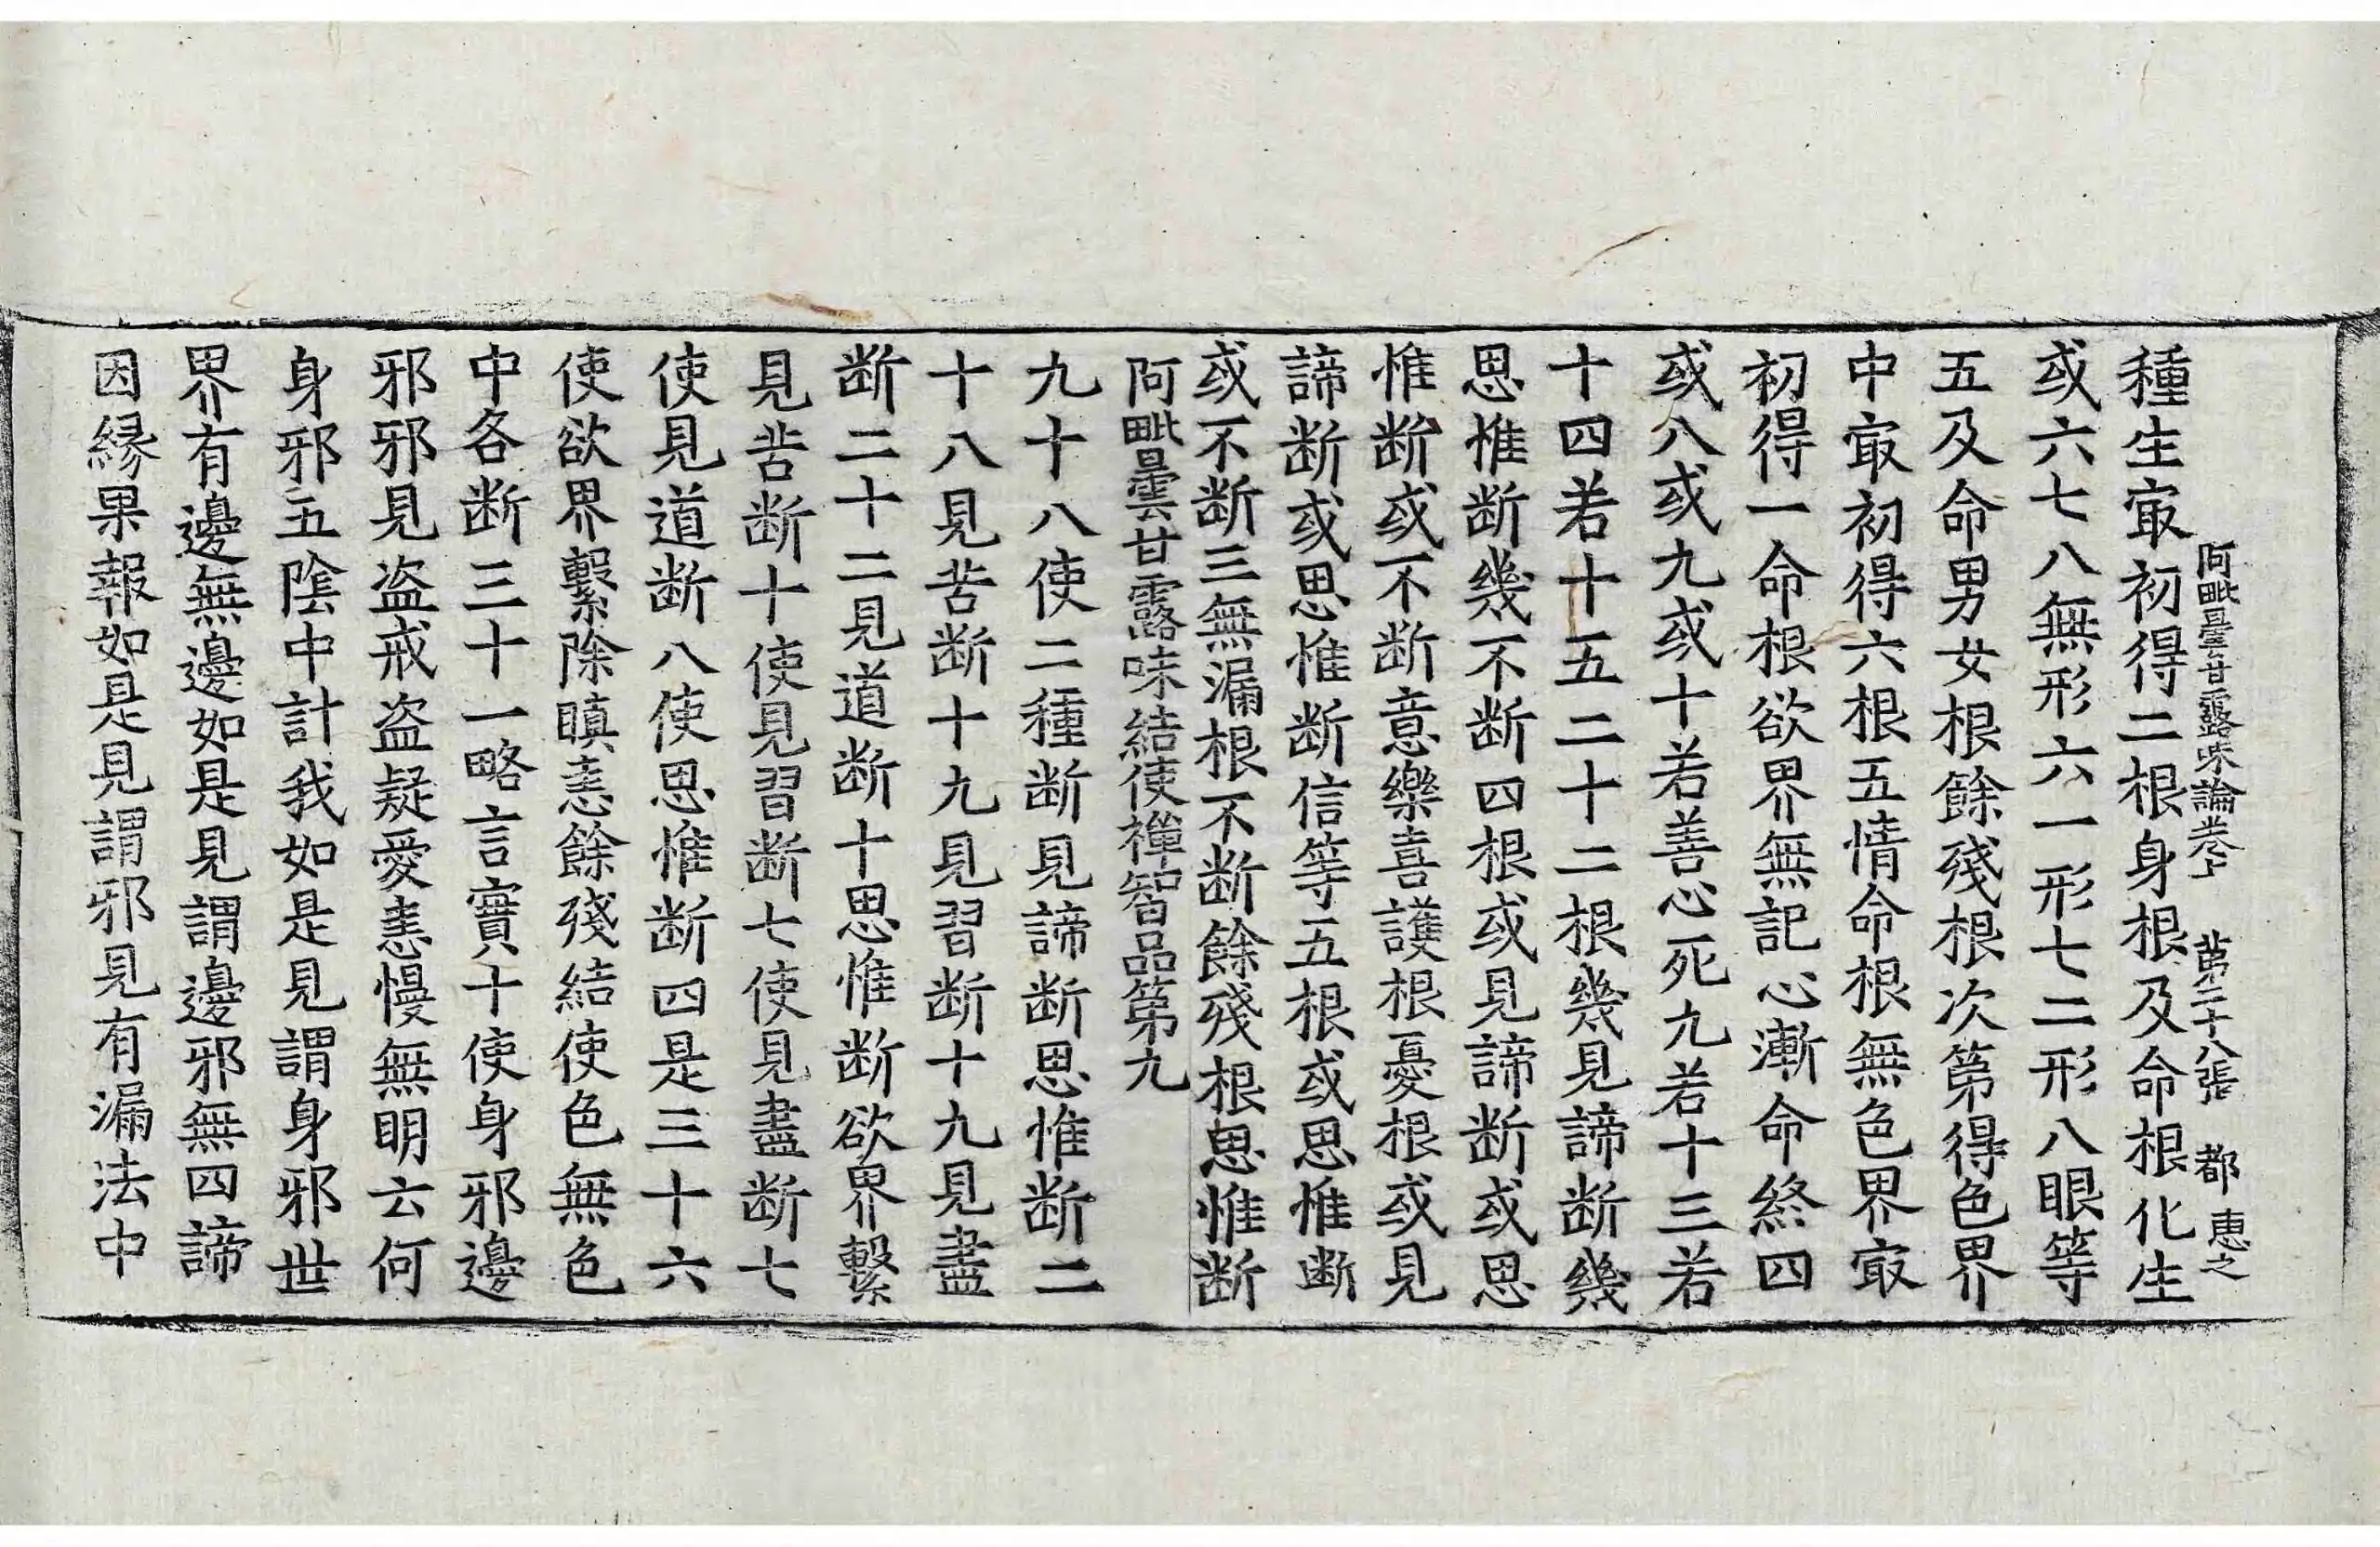 阿毗曇甘露味論卷上 苐二十八張 都 惠之
種生㝡初得二根身根及命根化生
或六七八無形六一形七二形八眼等
五及命男女根餘殘根次第得色界
中㝡初得六根五情命根無色界㝡
初得一命根欲界無記心漸命終四
或八或九或十若善心死九若十三若
十四若十五二十二根幾見諦断幾
思惟断幾不断四根或見諦断或思
惟断或不断意樂喜護根憂根或見
諦断或思惟断信等五根或思惟断
或不断三無漏根不断餘殘根思惟断
阿毗曇甘露味結使禪智品第九
九十八使二種断見諦断思惟断二
十八見苦断十九見習断十九見盡
断二十二見道断十思惟断欲界繫
見苦断十使見習断七使見盡断七
使見道断八使思惟断四是三十六
使欲界繫除瞋恚餘殘結使色無色
中各断三十一略言實十使身邪邊
邪邪見盗戒盗疑愛恚慢無明云何
身邪五陰中計我如是見謂身邪世
界有邊無邊如是見謂邊邪無四諦
因緣果報如是見謂邪見有漏法中